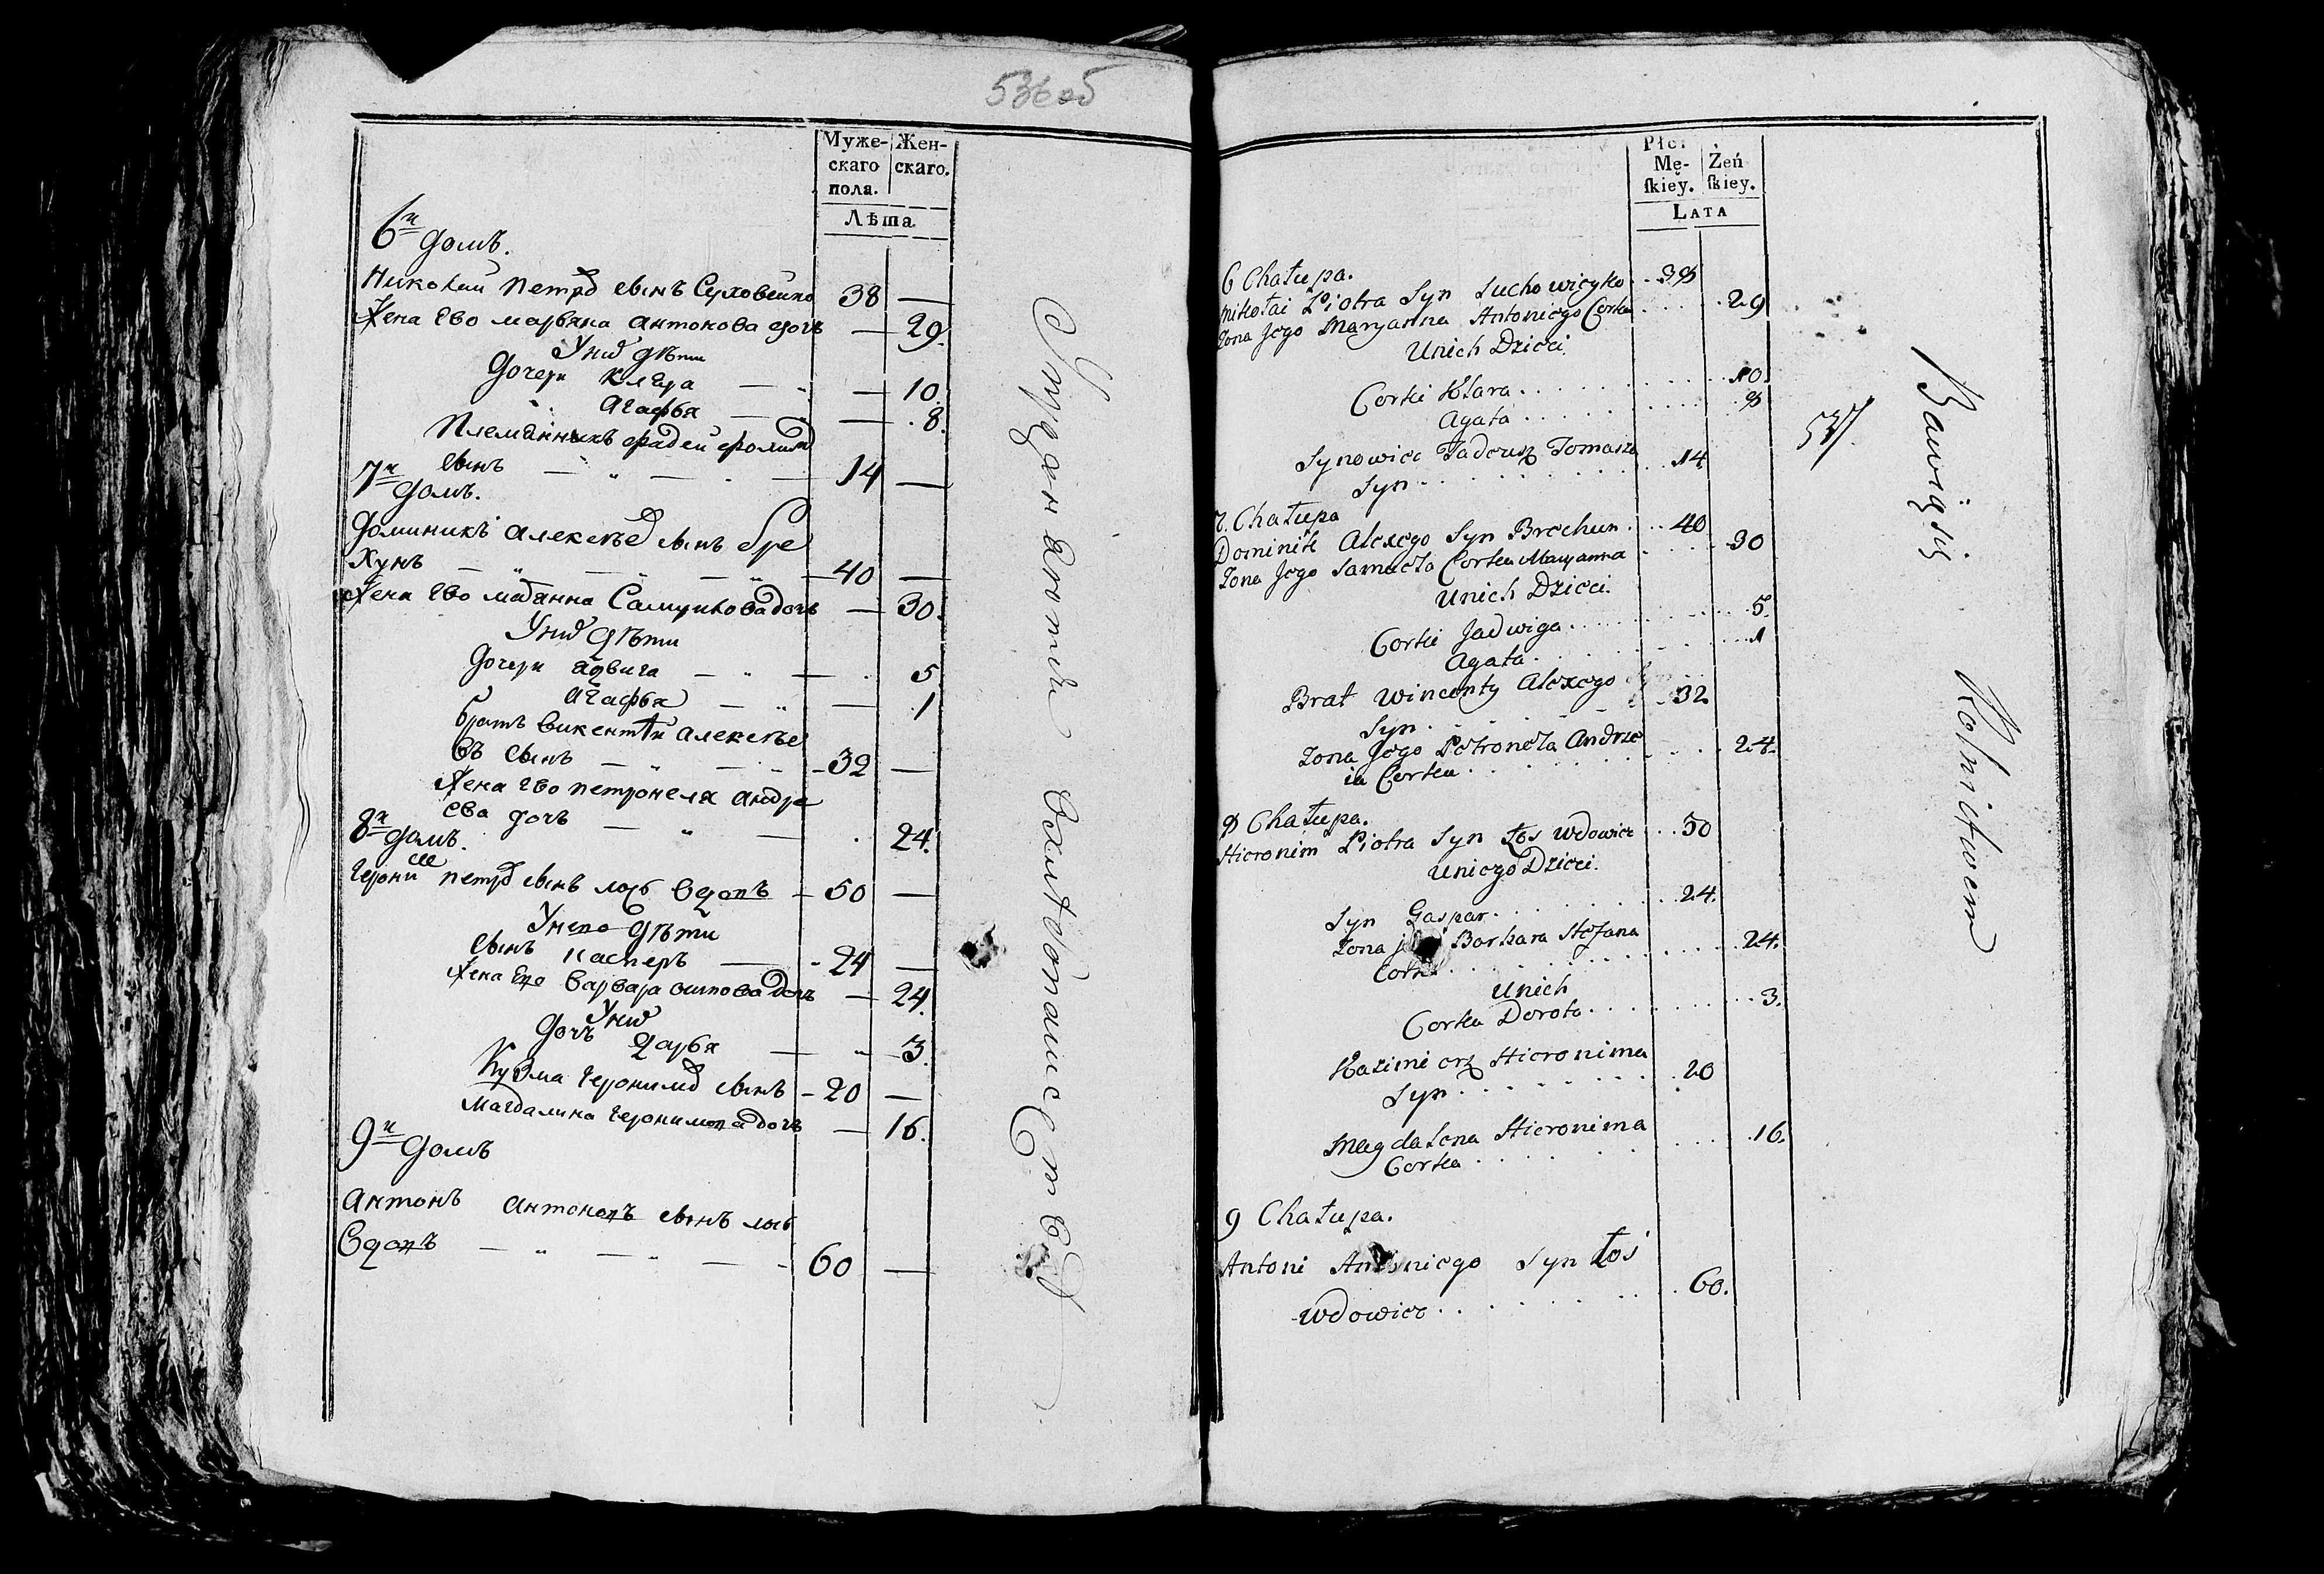 536об
Муже-
скаго
пола.
Жен-
скаго.
Лѣта.
6й домъ.
Николай Петров сынъ Суховейко 38 —
Жена Ево марьяна антонова дочь — 29.
У них дети
дочери Клара — 10.
агафья — 8.
Племянникъ фадей фомин
сынъ — 14 —
7й домъ.
доминикъ алексѣев сынъ бре
хунъ — 40 —
Жена Ево марянна Самуилова дочь — 30.
У них дѣти
дочери ядвига — 5
агафья — 1
братъ викентий алексѣе
въ сынъ — 32 —
Жена Ево петронеля андре
ева дочь — 24.
8й домъ.
Героним петров сынъ лось вдовъ — 50 —
У него дѣти
сынъ касперъ — 24 —
Жена Его варвара осипова дочь — 24.
У них
дочь дарья — 3.
Кузма Геронимов сынъ — 20 —
Магдалина Геронимова дочь — 16.
9й домъ
Антонъ Антоновъ сынъ лось
вдовъ — 60 —
Płci
Mę-
ſkiey.
Żeń
ſkiey.
LATA
6 Chałupa.
mikołai Piotra Syn Suchowieyko 38
Zona Jego Maryanna Antoniego Corka 29
Unich Dzieci.
Corki Klara 10.
Agata 8
Synowiec Tadeusz Tomasza
Syn 14
7. Chałupa
Dominik Alexego Syn Brechun 40
Zona Jego Samuela Corka Maryanna 30
Unich Dzieci.
Corki Jadwiga 5.
Agata 1
Brat Wincenty Alexego
Syn 32
Zona Jego Petronela Andrze
ia Corka 24.
8 Chałupa.
Hieronim Piotra Syn Łos wdowiec 50
Uniego Dzieci.
Syn Gaspar 24.
Zona Barbara Stefana
Corka 24.
Unich
Corka Dorota 3.
Kazimierz Hieronima
Syn 20
Magdalena Hieronima
Corka 16.
9 Chałupa.
Antoni Antoniego Syn Łoś
wdowiec 60.
537.